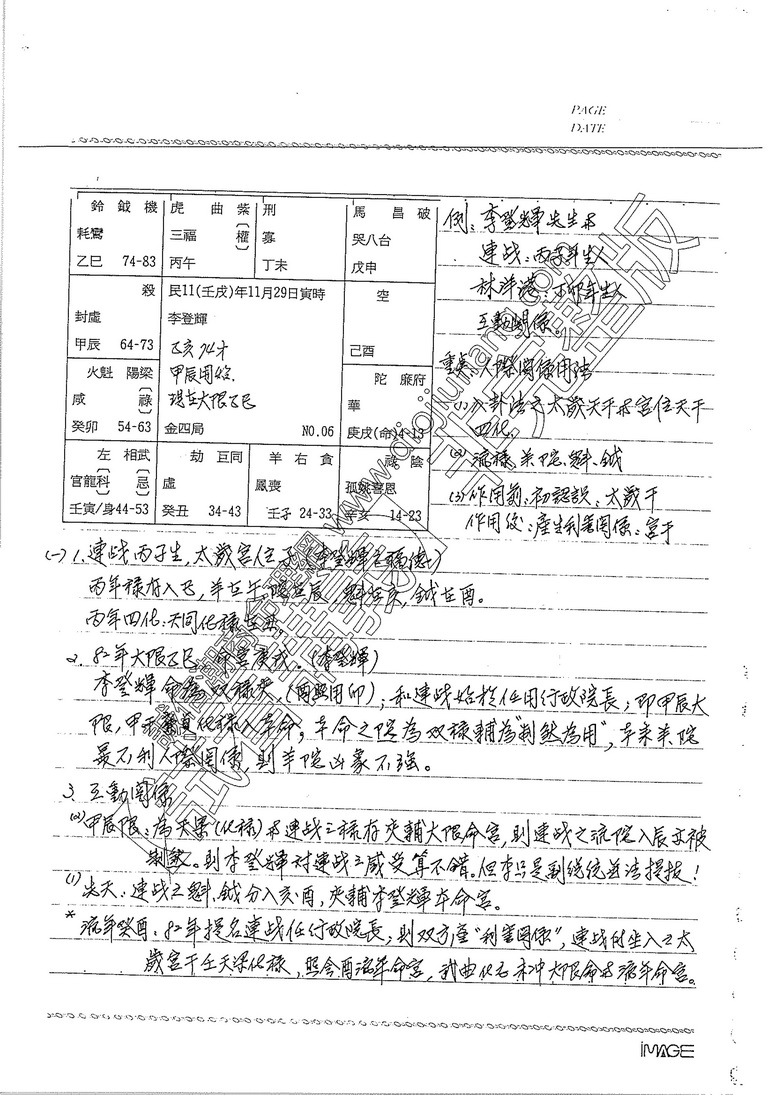 PAGE
DATE
鈴 鉞 機
耗鸞
乙巳 74-83
虎 曲 紫
〔權〕
三福
丙午
刑
寡
丁未
馬 昌 破
哭八台
戊申
殺
封虛
甲辰 64-73
民11(壬戌)年11月29日寅時
李登輝
乙亥74才
甲辰開始
現在大限乙巳
金四局 NO.06
空
己酉
火魁 陽梁
〔祿〕
咸
癸卯 54-63
陀 廉府
華
庚戌(命)4-13
左 相武
〔科〕〔忌〕
官龍
壬寅/身44-53
劫 巨同
虛
癸丑 34-43
羊 右 貪
鳳喪
壬子 24-33
祿 陰
孤姚喜恩
辛亥 14-23
例：李登輝先生與
連战：丙子年生人
林洋港：丁卯年生人
互動関係。
重奌：人際関係用法
(1)入卦法之太歲天干與宮位天干
四化。
(2)流祿、羊陀、魁、鉞
(3)作用前：初認識：太歲干
作用後：產生利害関係：宮干
(一)1.連战丙子生，太歲宮位子
丙年祿存入巳，羊在午，陀在辰，魁在亥，鉞在酉。
丙年四化：天同化祿在丑
2.82年大限乙巳，命宮庚戌。(李登輝)
李登輝命為双祿夾，，和連战始於任用行政院長；即甲辰大
限，甲干廉貞化祿入本命，本命之陀為双祿輔為"制煞為用"，本來羊陀
最不利人際関係，則羊陀凶象不強。
3.互動関係
(2)甲辰限：為天梁(化祿)與連战之祿存夾輔大限命宮，則連战之流陀入辰亦被
制煞。則李登輝對連战之感受算不錯。但李只是副總統並沒提拔！
(1)先天：連战之魁、鉞分入亥酉，夾輔李登輝本命宮。
*流年癸酉：82年提名連战任行政院長，則双方產"利害関係"，連战的坐入之太
歲宮干壬天梁化祿，照會酉流年命宮，武曲化忌未冲大限命與流年命宮。
iMAGE